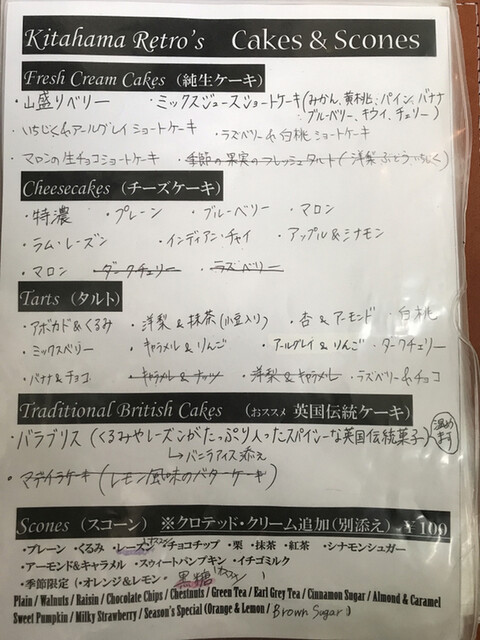 Kitahama Retro's Cakes & Scones
Fresh Cream Cakes (純生ケーキ)
・山盛りベリー ・ミックスジュースショートケーキ(みかん、黄桃、パイン、バナナ
ブルーベリー、キウイ、チェリー)
・いちじく&アールグレイショートケーキ ・ラズベリー&白桃ショートケーキ
・マロンの生チョコショートケーキ ・季節の果実のフレッシュタルト(洋梨 ぶどう いちじく)
Cheesecakes (チーズケーキ)
・特濃 ・プレーン ・ブルーベリー ・マロン
・ラム・レーズン ・インディアン・チャイ ・アップル&シナモン
・マロン ・ダークチェリー ・ラズベリー
Tarts (タルト)
・アボカド&くるみ ・洋梨&抹茶(小豆入り) ・杏&アーモンド ・白桃
・ミックスベリー ・キャラメル&りんご ・アールグレイ&りんご ・ダークチェリー
・バナナ&チョコ ・キャラメル&ナッツ ・洋梨&キャラメル ・ラズベリー&チョコ
Traditional British Cakes (おススメ 英国伝統ケーキ)
・バラブリス(くるみやレーズンがたっぷり入ったスパイシーな英国伝統菓子) 温めます
↳バニラアイス添え
・マデイラケーキ(レモン風味のバターケーキ)
Scones (スコーン) ※クロテッド・クリーム追加(別添え) ¥100
・プレーン ・くるみ ・レーズン ・チョコチップ ・栗 ・抹茶 ・紅茶 ・シナモンシュガー
・アーモンド&キャラメル ・スウィートパンプキン ・イチゴミルク
・季節限定(・オレンジ&レモン 黒糖 )
Plain / Walnuts / Raisin / Chocolate Chips / Chestnuts / Green Tea / Earl Grey Tea / Cinnamon Sugar / Almond & Caramel
Sweet Pumpkin / Milky Strawberry / Season's Special (Orange & Lemon / Brown Sugar)